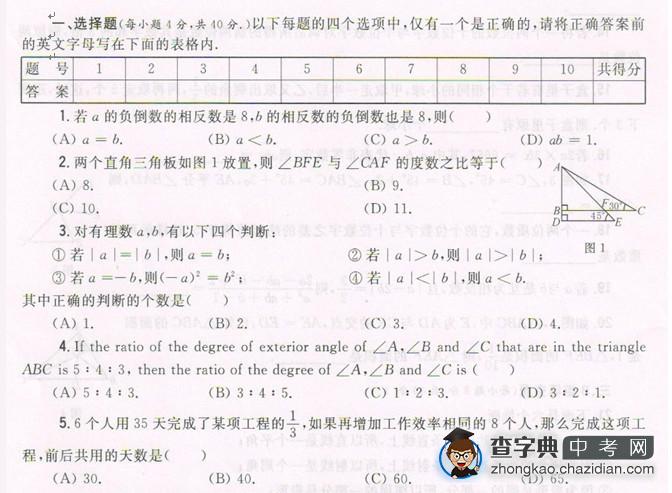 一、选择题(每小题4分,共40分.)以下每题的四个选项中,仅有一个是正确的,请将正确答案前
的英文字母写在下面的表格内.
题 号 1 2 3 4 5 6 7 8 9 10 共得分
答 案
1. 若 a 的负倒数的相反数是 8,b 的相反数的负倒数也是 8,则( )
(A) a = b. (B) a < b. (C) a > b. (D) ab = 1.
2. 两个直角三角板如图 1 放置,则 ∠BFE 与 ∠CAF 的度数之比等于( )
(A) 8. (B) 9.
(C) 10. (D) 11.
A
B
D
F
30°
C
45°
E
图 1
3. 对有理数 a,b,有以下四个判断:
① 若 | a | = | b |,则 a = b; ② 若 | a | > b,则 | a | > | b |;
③ 若 a = − b,则(− a)² = b²; ④ 若 | a | < | b |,则 a < b.
其中正确的判断的个数是( )
(A) 1. (B) 2. (C) 3. (D) 4.
4. If the ratio of the degree of exterior angle of ∠A,∠B and ∠C that are in the triangle
ABC is 5 : 4 : 3, then the ratio of the degree of ∠A,∠B and ∠C is ( )
(A) 5 : 4 : 3. (B) 3 : 4 : 5. (C) 1 : 2 : 3. (D) 3 : 2 : 1.
5. 6 个人用 35 天完成了某项工程的 1/3,如果再增加工作效率相同的 8 个人,那么完成这项工
程,前后共用的天数是( )
(A) 30. (B) 40. (C) 60. (D) 65.
查字典 中考网
zhongkao.chazidian.com